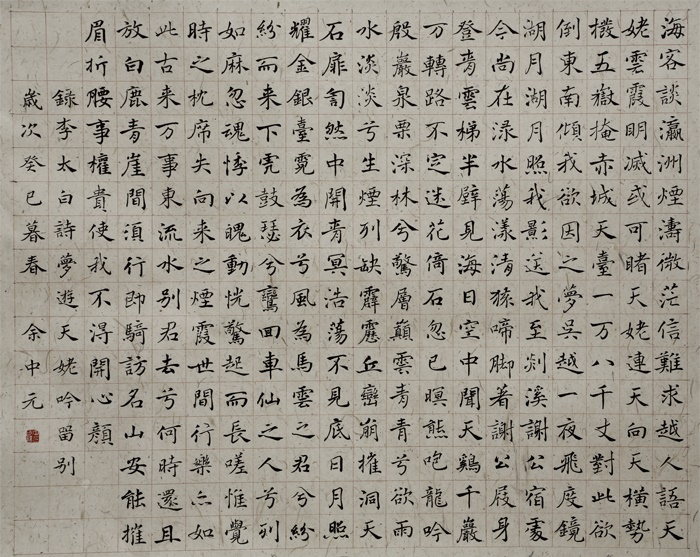 海客談瀛洲煙濤微茫信難求越人語天
姥雲霞明滅或可睹天姥連天向天橫勢
撥五嶽掩赤城天臺一万八千丈對此欲
倒東南傾我欲因之夢吳越一夜飛度鏡
湖月湖月照我影送我至剡溪謝公宿處
今尚在淥水蕩漾清猿啼脚著謝公屐身
登青雲梯半壁見海日空中聞天鷄千巖
万轉路不定迷花倚石忽已暝熊咆龍吟
殷巖泉栗深林兮驚層巔雲青青兮欲雨
水淡淡兮生煙列缺霹靂丘巒崩摧洞天
石扉訇然中開青冥浩蕩不見底日月照
耀金銀臺霓為衣兮風為馬雲之君兮紛
紛而来下虎鼓瑟兮鸞回車仙之人兮列
如麻忽魂悸以魄動恍驚起而長嗟惟覺
時之枕席失向来之煙霞世間行樂亦如
此古来万事東流水别君去兮何時還且
放白鹿青崖間須行即騎訪名山安能摧
眉折腰事權貴使我不得開心顏
錄李太白詩夢遊天姥吟留别
歲次癸巳暮春 余中元